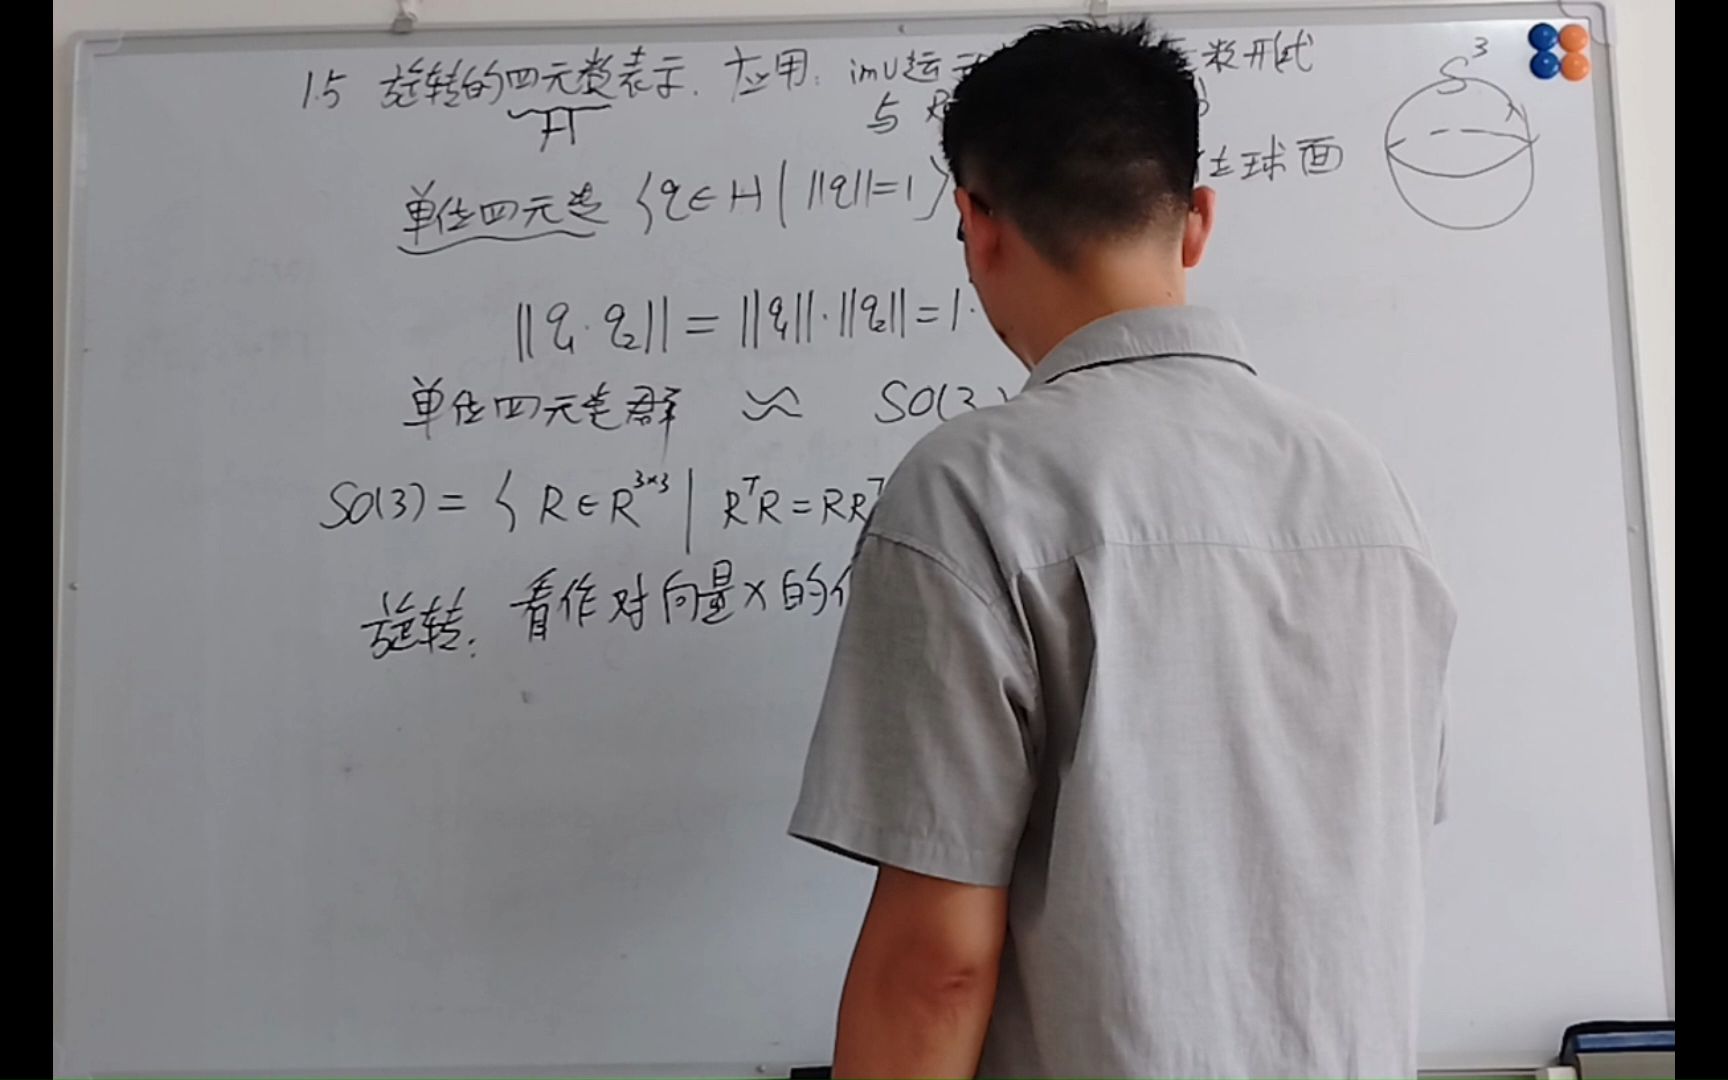 1.5 旋转的四元数表示. 应用: imu运动 数形式
H 与 R
单位四元数 {q∈H | ||q||=1} 位球面 S³
||q₁·q₂|| = ||q₁||·||q₂|| = 1·
单位四元数群 ≈ SO(3)
SO(3) = { R∈R³ˣ³ | RᵀR = RRᵀ
旋转: 看作对向量x的